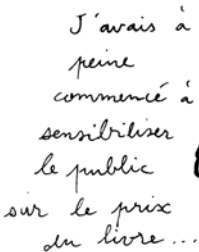 J'avais à
peine
commencé à
sensibiliser
le public
sur le prix
du livre...